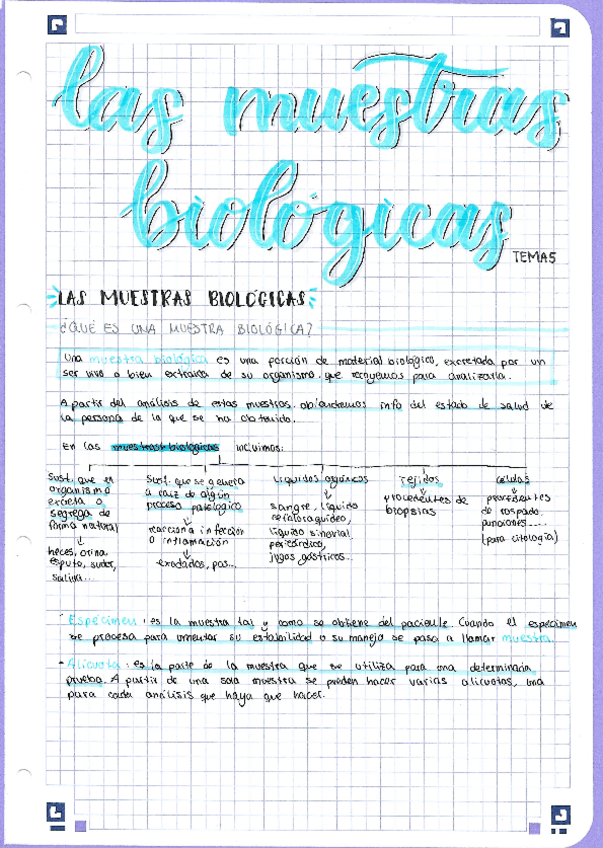 las muestras
biológicas
TEMA5
LAS MUESTRAS BIOLÓGICAS
¿QUÉ ES UNA MUESTRA BIOLÓGICA?
Una muestra biológica es una porción de material biológico, excretada por un
ser vivo o bien extraída de su organismo, que recogemos para analizarla.
A partir del análisis de estas muestras, obtenemos info del estado de salud de
la persona de la que se ha obtenido.
En las muestras biológicas incluimos:
Sust. que el
organismo
excreta o
segrega de
forma natural
heces, orina,
esputo, sudor,
saliva...
Sust. que se genera
a raíz de algún
proceso patológico
reacción a infección
o inflamación
exudados, pus...
Líquidos orgánicos
sangre, líquido
cefaloraquídeo,
líquido sinovial
pericárdico,
jugos gástricos...
Tejidos
procedentes de
biopsias
Células
procedentes
de raspado,
punciones....
(para citología)
- Espécimen: es la muestra tal y como se obtiene del paciente. Cuando el espécimen
se procesa para aumentar su estabilidad o su manejo se pasa a llamar muestra.
- Alícuota: es la parte de la muestra que se utiliza para una determinada
prueba. A partir de una sola muestra se pueden hacer varias alícuotas, una
para cada análisis que haya que hacer.